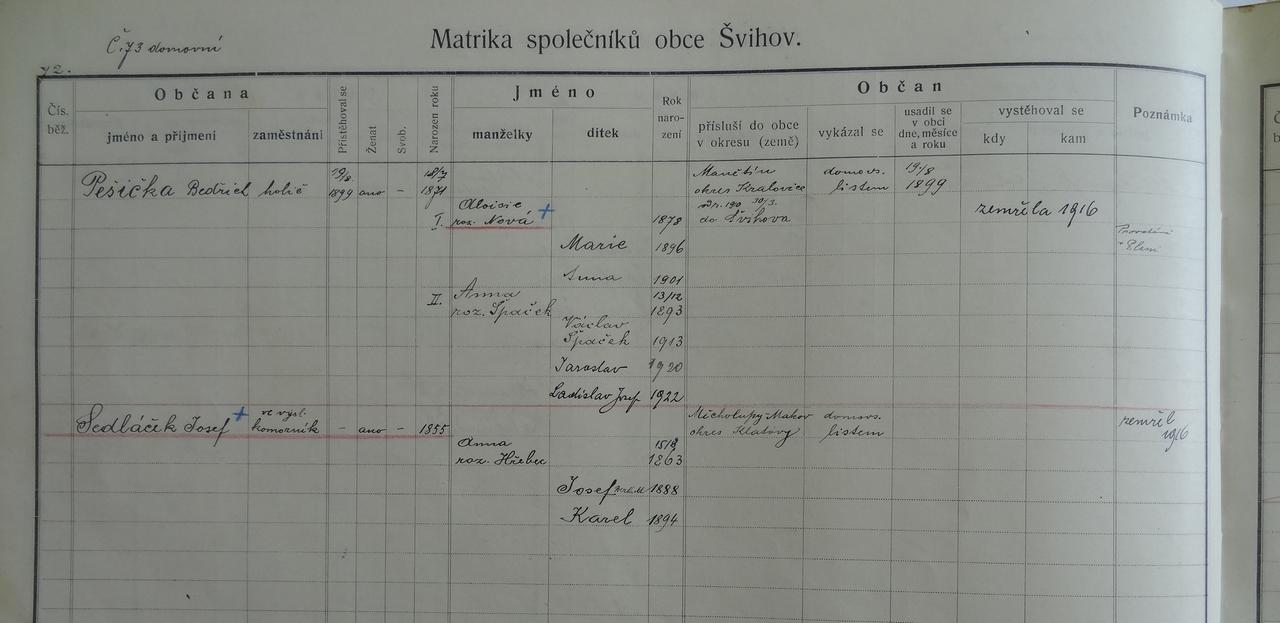 Č. 73 domovní
72.
Matrika společníků obce Švihov.
Čís. běž.
Občana
jméno a příjmení
zaměstnání
Přistěhoval se
Ženat
Svob.
Narozen roku
Jméno
manželky
dítek
Rok naro- zení
Občan
přísluší do obce v okresu (země)
vykázal se
usadil se v obci dne, měsíce a roku
vystěhoval se
kdy
kam
Poznámka
Pešička Bedřich holič 1899 ano – 18/7 1871
Manětín okres Kralovice
domovs. listem
19/8 1899
do Švihova
I. Aloisie roz. Nová + 1878 zemřela 1916
Marie 1896
Anna 1901
II. Anna roz. Špaček 13/12 1893
Václav Špaček 1913
Jaroslav 1920
Ladislav Josef 1922
Sedláček Josef + ve výsl. komorník – ano – 1855
Měcholupy-Makov okres Klatovy
domovs. listem
zemřel 1916
Anna roz. Hřebec 1863
Josef 1888
Karel 1894